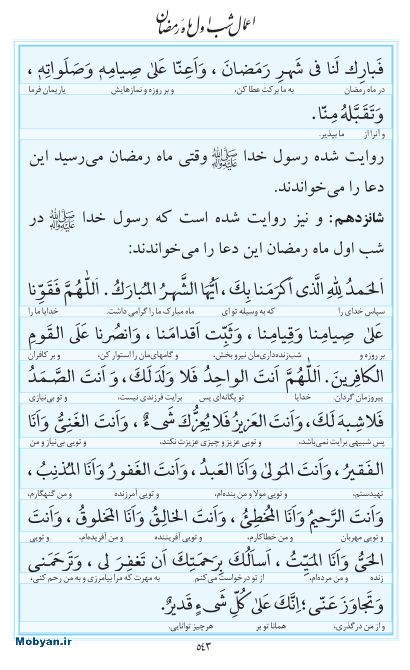 اعمال شب اول ماه رمضان
فَبارِك لَنا فی شَهرِ رَمَضانَ ، وَاَعِنّا عَلیٰ صِیامِهِ وَصَلَواتِهِ ،
در ماه رمضان به ما برکت عطا کن، و بر روزه و نمازهایش یاریمان فرما
وَتَقَبَّلهُ مِنّا.
و آن را از ما بپذیر.
روایت شده رسول خدا ﷺ وقتی ماه رمضان می‌رسید این
دعا را می‌خواندند.
شانزدهم: و نیز روایت شده است که رسول خدا ﷺ در
شب اول ماه رمضان این دعا را می‌خواندند:
اَلحَمدُ لِلّٰهِ الَّذی اَکرَمَنا بِكَ ، اَیُّهَا الشَّهرُ المُبارَكُ . اَللّٰهُمَّ فَقَوِّنا
سپاس خدای را که به وسیله تو ای ماه مبارک ما را گرامی داشت. خدایا ما را
عَلیٰ صِیامِنا وَقِیامِنا ، وَثَبِّت اَقدامَنا ، وَانصُرنا عَلَی القَومِ
بر روزه و شب‌زنده‌داری‌مان نیرو بخش، و گامهای‌مان را استوار کن، و بر کافران
الکافِرینَ . اَللّٰهُمَّ اَنتَ الواحِدُ فَلا وَلَدَ لَكَ ، وَاَنتَ الصَّمَدُ
پیروزمان گردان. خدایا تو یگانه‌ای پس برایت فرزندی نیست، و تو بی‌نیازی
فَلا شِبهَ لَكَ ، وَاَنتَ العَزیزُ فَلا یُعِزُّكَ شَیءٌ ، وَاَنتَ الغَنِیُّ وَاَنَا
پس شبیهی برایت نمی‌باشد، و تویی عزیز و چیزی عزیزت نکند، و تویی بی‌نیاز و من
الفَقیرُ ، وَاَنتَ المَولیٰ وَاَنَا العَبدُ ، وَاَنتَ الغَفورُ وَاَنَا المُذنِبُ ،
تهیدستم، و تویی مولا و من بنده‌ام، و تویی آمرزنده و من گنهکارم،
وَاَنتَ الرَّحیمُ وَاَنَا المُخطِئُ ، وَاَنتَ الخالِقُ وَاَنَا المَخلوقُ ، وَاَنتَ
و تویی مهربان و من خطاکارم، و تویی آفریننده و من آفریده‌ام، و تویی
الحَیُّ وَاَنَا المَیِّتُ ، اَسأَلُكَ بِرَحمَتِكَ اَن تَغفِرَ لی ، وَتَرحَمَنی
زنده و من مرده‌ام، از تو درخواست می‌کنم به مهرت که مرا بیامرزی و به من رحم کنی،
وَتَجاوَزَ عَنّی ؛ اِنَّكَ عَلیٰ کُلِّ شَیءٍ قَدیرٌ.
و از من درگذری، همانا تو بر هر چیز توانایی.
Mobyan.ir
۵۴۳